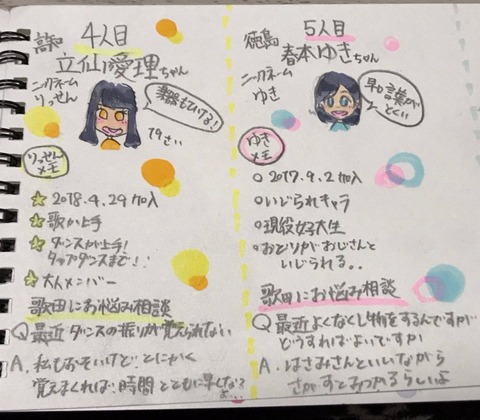 4人目
立仙愛理ちゃん
ニックネーム
りっせん
楽器もひける!
19さい
りっせん
メモ
2018.4.29加入
歌が上手
ダンスが上手!
タップダンスまで!!
大人メンバー
歌田にお悩み相談
Q 最近ダンスの振りが覚えられない
A. 私もおそいけど とにかく
覚えまくれば 時間とともに早くなる
よ…
徳島 5人目
春本ゆきちゃん
ニックネーム
ゆき
早口言葉が
とくい
ゆき
メモ
2017.9.2加入
いじられキャラ
現役女子大生
おどりがおじさんと
いじられる。。
歌田にお悩み相談
Q 最近よくなくし物をするんですが
どうすればよいですか
A. はさみさんといいながら
さがすとみつかるらしいよ